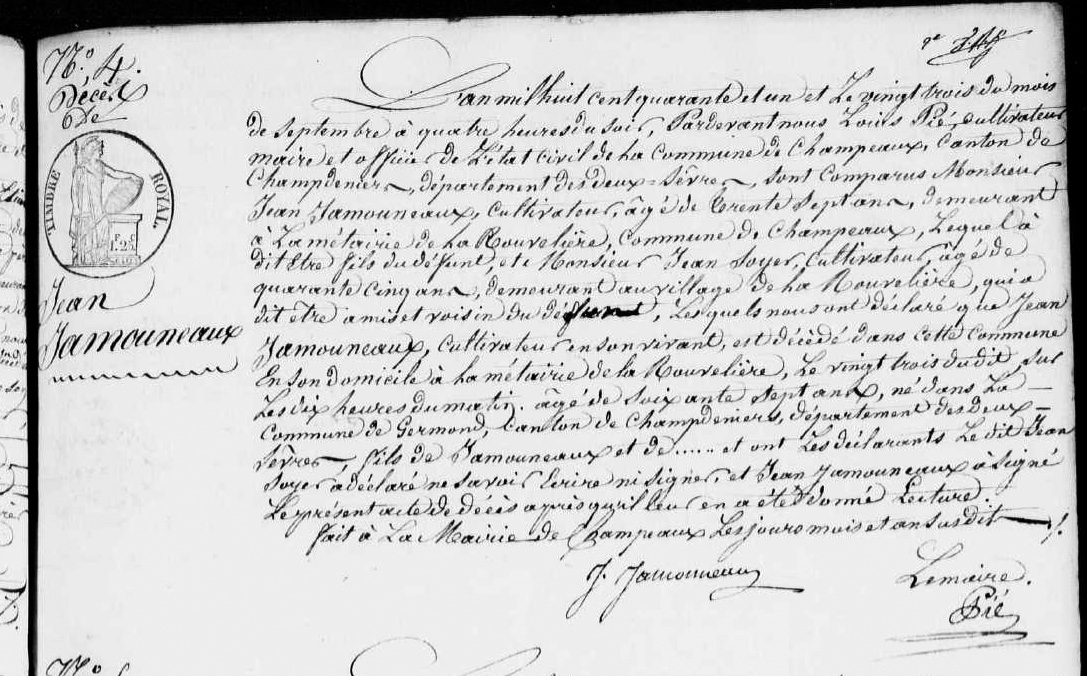 N.º 4.
Décès
De
TIMBRE ROYAL.
1.25
Jean
Jamouneaux
L'an mil huit cent quarante et un et Le vingt trois du mois
de septembre à quatre heures du soir, Pardevant nous Louis Pié, cultivateur
maire et officier de L'état civil de La Commune de Champeaux, Canton de
Champdeniers, département des deux=Sèvres, sont comparus Monsieur
Jean Jamouneaux, Cultivateur, âgé de trente sept ans, demeurant
à La métairie de La Rouvelière, Commune de Champeaux, Lequel à
dit Etre fils du défunt, et Monsieur Jean Soyer, Cultivateur, âgé de
quarante cinq ans, demeurant au village de La Rouvelière, qui a
dit être amis et voisin du défunt, Lesquels nous ont déclaré que Jean
Jamouneaux, Cultivateur en son vivant, est décédé dans cette Commune
En son domicile à La métairie de la Rouvelière, Le vingt trois du dit, sur
Les dix heures du matin. âgé de soixante sept ans, né dans La
Commune de Germond, Canton de Champdeniers, département des deux-
Sèvres, fils de Jamouneaux et de ...... et ont Les déclarants Le dit Jean
Soyer à déclaré ne savoir Ecrire ni signer, et Jean Jamouneaux à signé
Le présent acte de décès après qu'il leur en a été donné Lecture.
fait à La Mairie de Champeaux Les jours mois et an susdit
J. Jamouneaux
Lemaire.
Pié
N.º